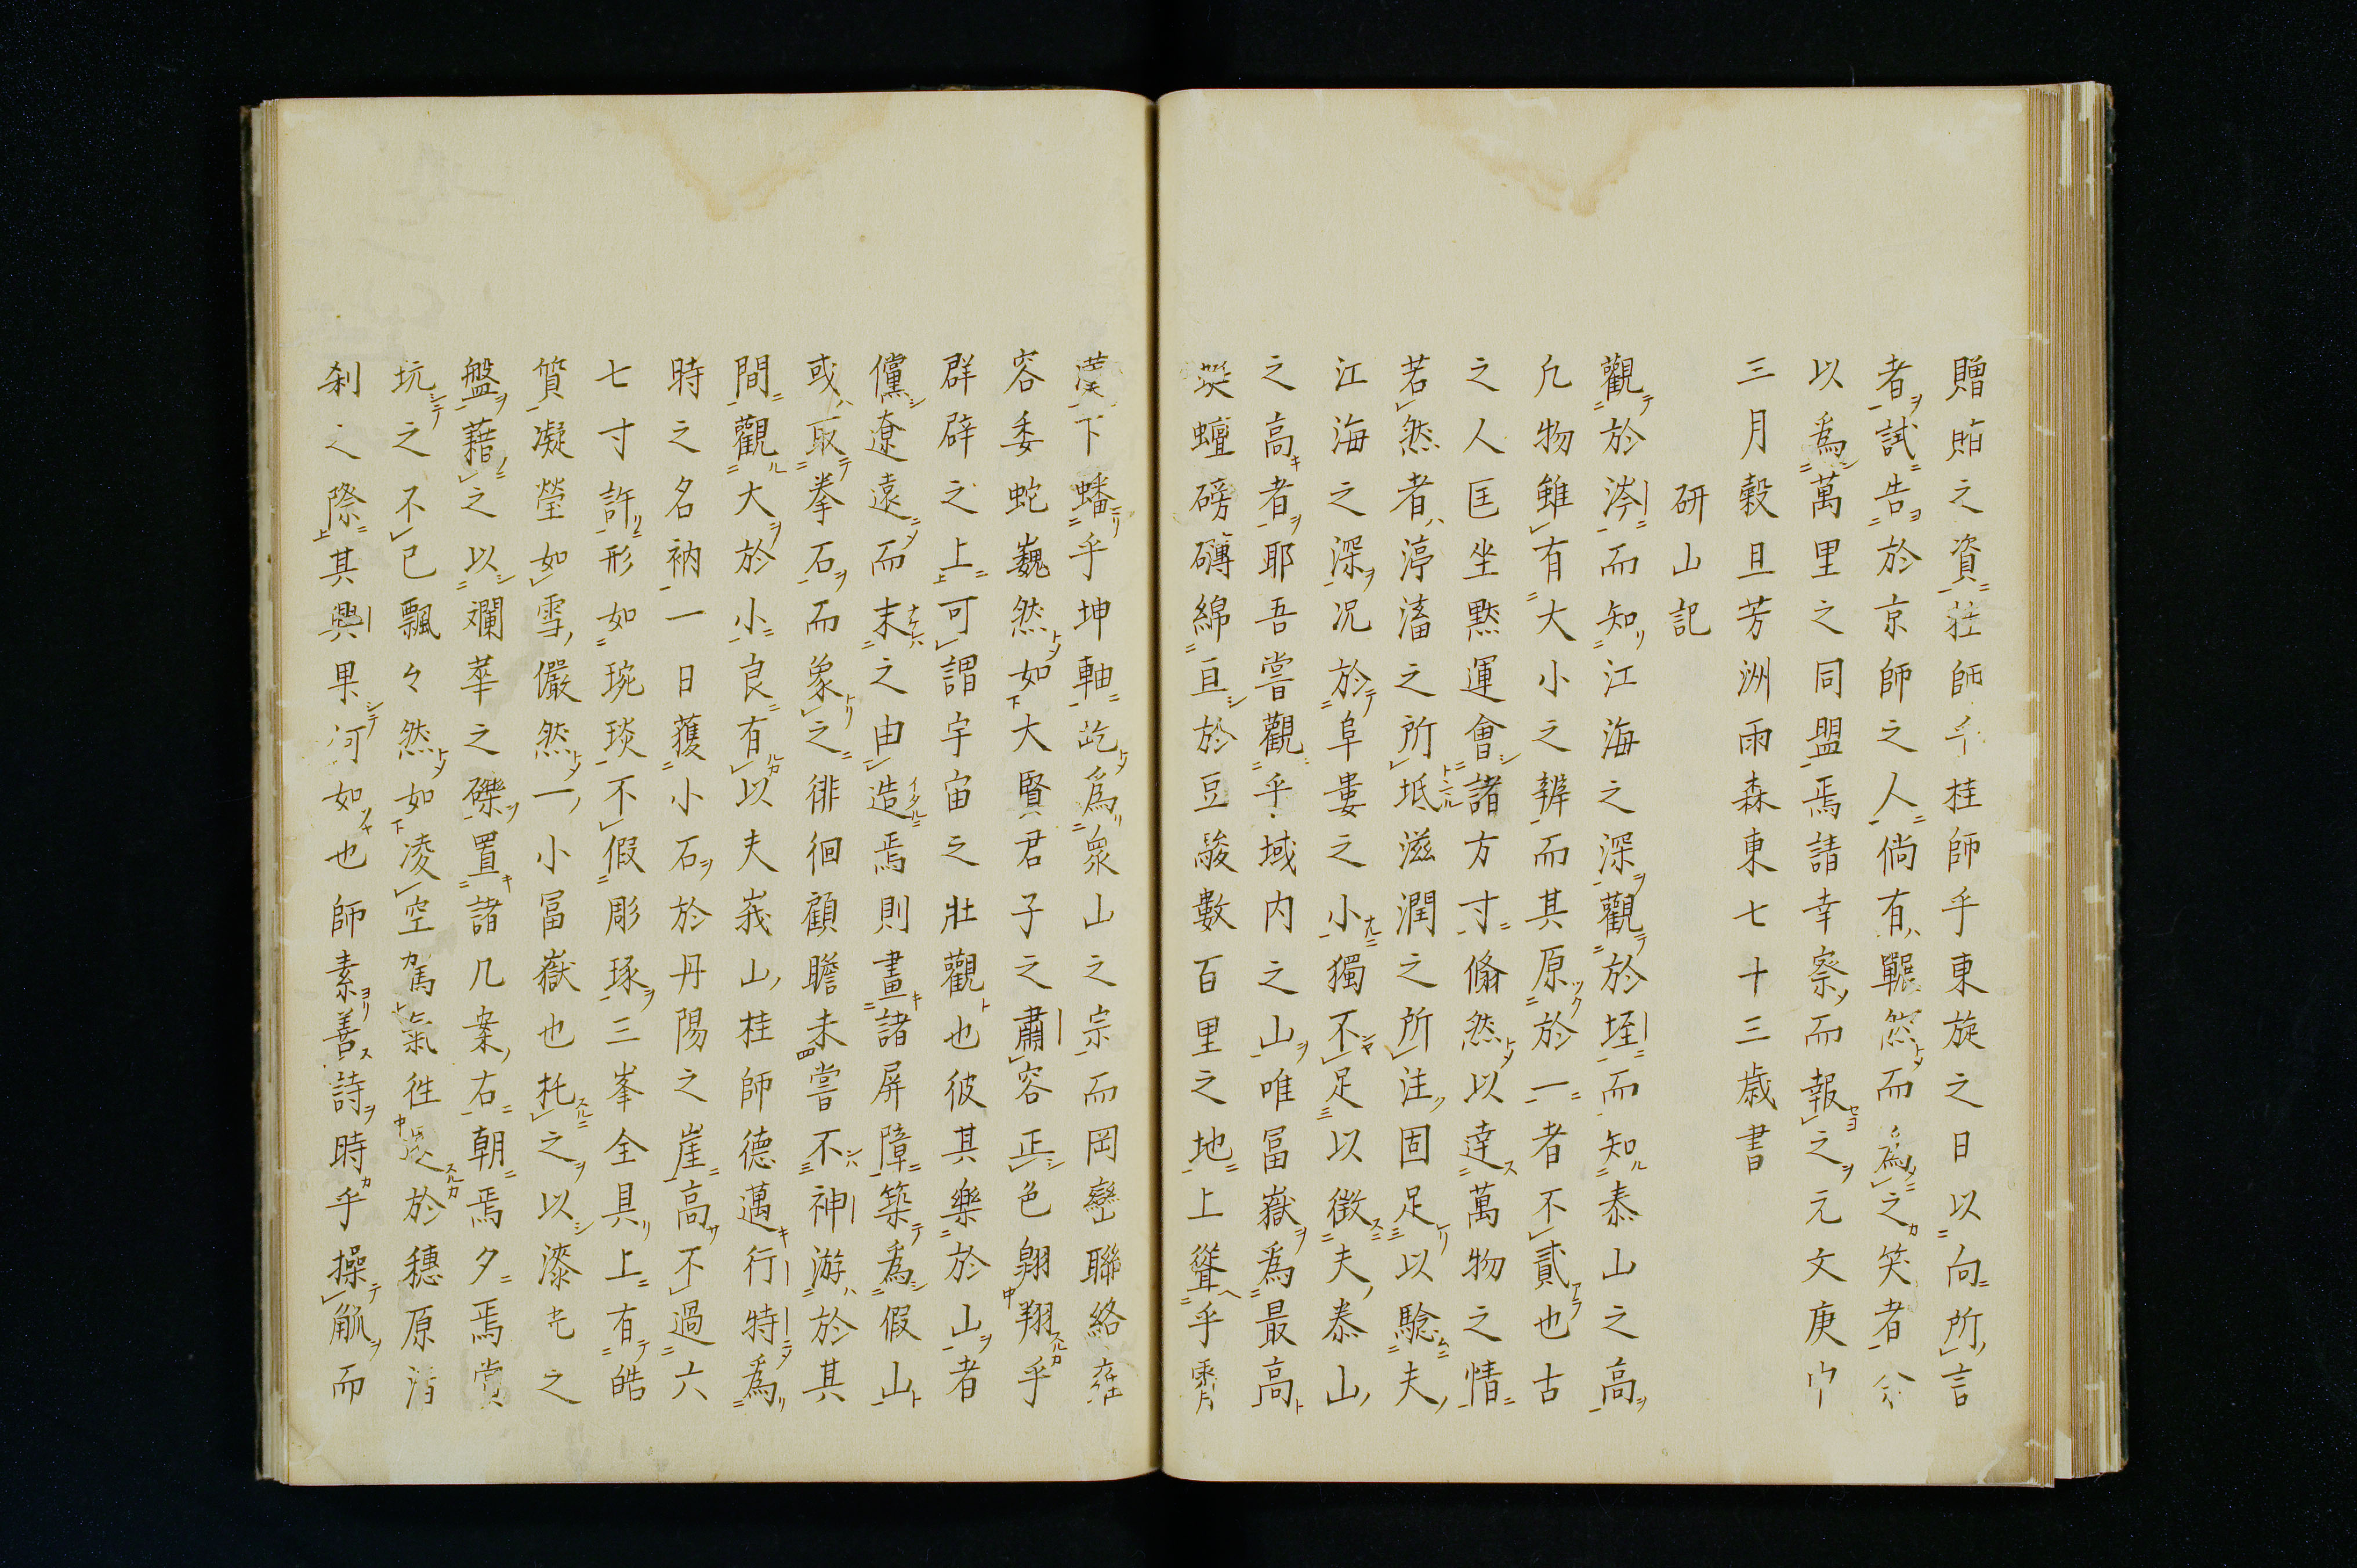 贈貽之資荘師千桂師乎東旋之日以向所言
者試告於京師之人倘有囅然而為之笑者
以爲萬里之同盟焉請幸察而報之元文庚
三月穀旦芳洲雨森東七十三歳書
研山記
觀於涔而知江海之深觀於垤而知泰山之高
凢物雖有大小之辨而其原於一者不貳也古
之人匡坐黙運會諸方寸翛然以達萬物之情
若然者渟滀之所坻滋潤之所注固足以騐夫
江海之深况於阜婁之小獨不足以徴夫泰山
之高者耶吾嘗觀乎域内之山唯冨嶽為最高
蟺磅礴綿亘於豆駿數百里之地上聳乎霄
漢下蟠乎坤軸屹爲衆山之宗而岡巒聯絡
容委蛇巍然如大賢君子之肅容正色翺翔乎
群辟之上可謂宇宙之壯觀也彼其樂於山者
儻遼遠而末之由造焉則畫諸屏障築為假山
或取拳石而象之徘徊顧瞻未嘗不神游於其
間觀大於小良有以夫峩山桂師德邁行特爲
時之名衲一日獲小石於丹陽之崖高不過六
七寸許形如琬琰不假彫琢三峯全具上有皓
質凝瑩如雪儼然一小冨嶽也托之以漆皃之
盤藉之以斕華之礫置諸几案右朝焉夕焉賞
玩之不已飄々然如凌空馭氣徃還於穗原清
刹之際其興果河如也師素善詩時乎操觚而